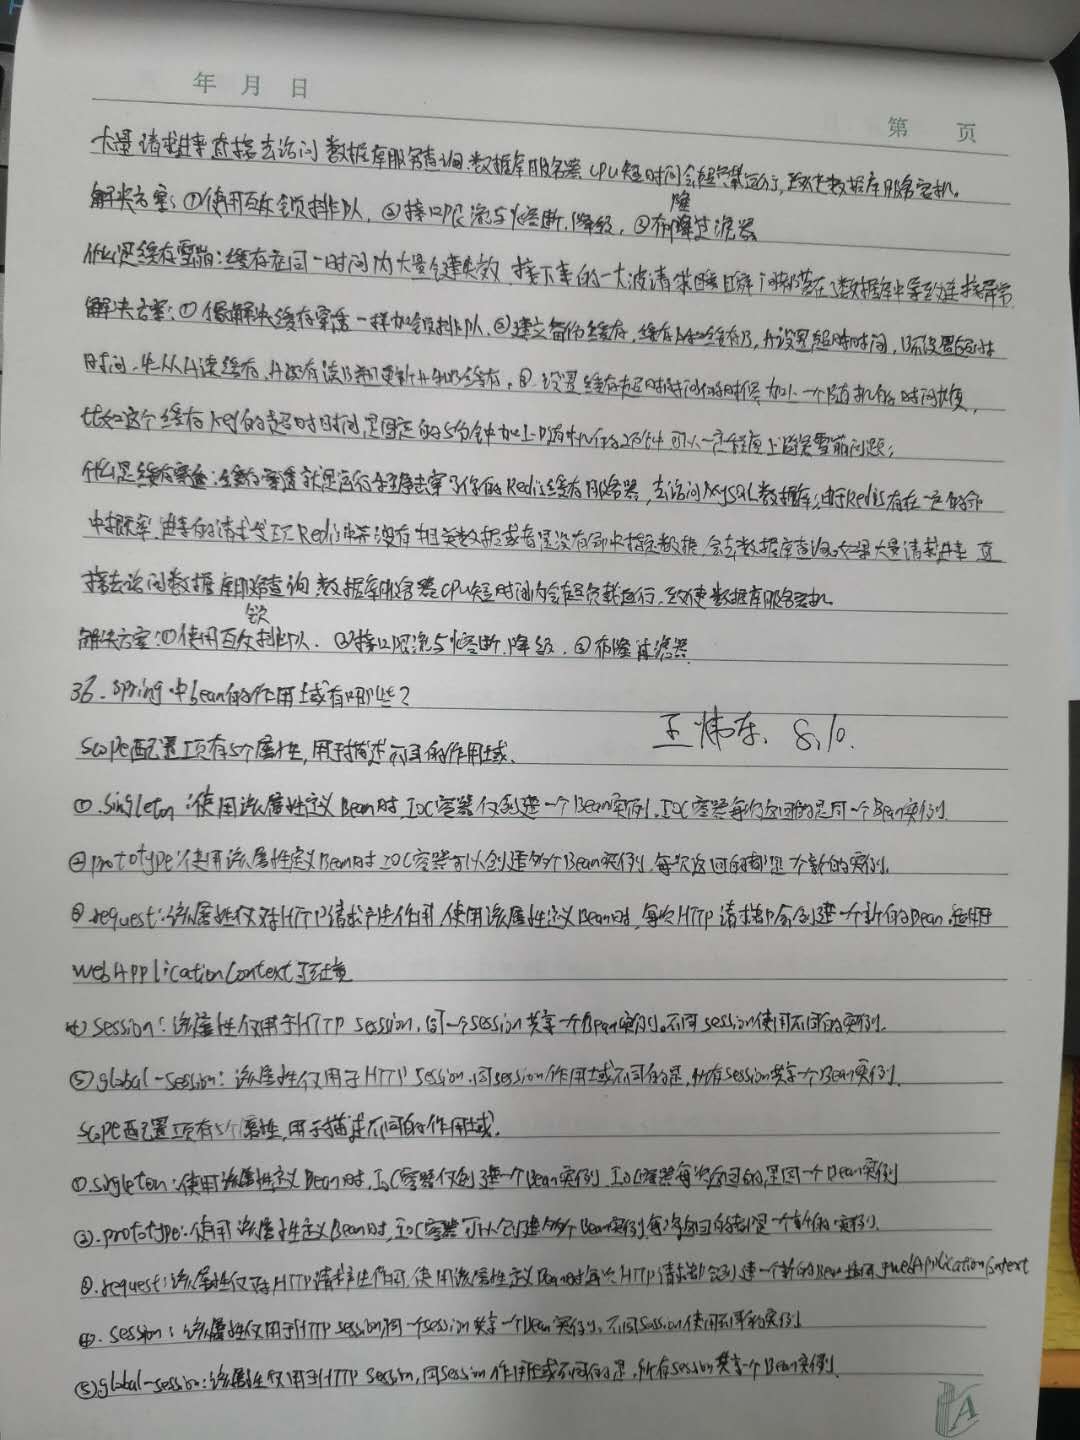 年 月 日
第 页
大量请求进来直接去访问数据库服务查询,数据库服务器CPU短时间会超负荷运行,致使数据库服务宕机。
隆
解决方案:①使用互斥锁排队,②接口限流与熔断,降级,③布隆过滤器
什么是缓存雪崩:缓存在同一时间内大量键失效,接下来的一大波请求瞬间都落在了数据库中导致连接异常
解决方案:①像解决缓存穿透一样加锁排队,②建立备份缓存,缓存A和缓存B,A设置超时时间,B不设置超时
时间,先从A读缓存,A没有读B并更新A和B缓存,③设置缓存超时时间的时候加上一个随机的时间长度,
比如这个缓存key的超时时间是固定的5分钟加上随机的2分钟,可从一定程度上避免雪崩问题;
什么是缓存穿透:缓存穿透就是请求击穿了你的Redis缓存服务器,去访问MySQL数据库;由于Redis存在一定的命
中概率,进来的请求发现Redis中并没有相关数据或者是没有命中指定数据,会去数据库查询,如果大量请求进来 直
接去访问数据库服务查询 数据库服务器CPU短时间内会超负载运行,致使数据库服务宕机
锁
解决方案:①使用互斥排队. ②接口限流与熔断,降级,③布隆过滤器
36.spring中bean的作用域有哪些?
王炜东 8.10.
Scope配置项有5个属性,用于描述不同的作用域.
①.singleton:使用该属性定义Bean时,IOC容器仅创建一个Bean实例,IOC容器每次返回的是同一个Bean实例.
②prototype:使用该属性定义Bean时IOC容器可以创建多个Bean实例,每次返回的都是一个新的实例.
③.request:该属性仅对HTTP请求产生作用,使用该属性定义Bean时,每次HTTP请求都会创建一个新的Bean,适用于
WebApplicationContext环境
④session:该属性仅用于HTTP session,同一个session共享一个Bean实例。不同session使用不同的实例.
⑤global-session:该属性仅用于HTTP session,同session作用域不同的是,所有session共享一个Bean实例.
Scope配置项有5个属性,用于描述不同的作用域.
①.singleton:使用该属性定义Bean时,IOC容器仅创建一个Bean实例,IOC容器每次返回的是同一个Bean实例
②.prototype:使用该属性定义Bean时,IOC容器可以创建多个Bean实例,每次返回的都是一个新的实例.
③.request:该属性仅对HTTP请求产生作用,使用该属性定义Bean时每次HTTP请求都会创建一个新的Bean 适用于WebApplicationContext
④.session:该属性仅用于HTTP session,同一个session共享一个Bean实例,不同session使用不同的实例
⑤global-session:该属性仅用于HTTP session,同session作用域不同的是,所有session共享一个Bean实例.
A